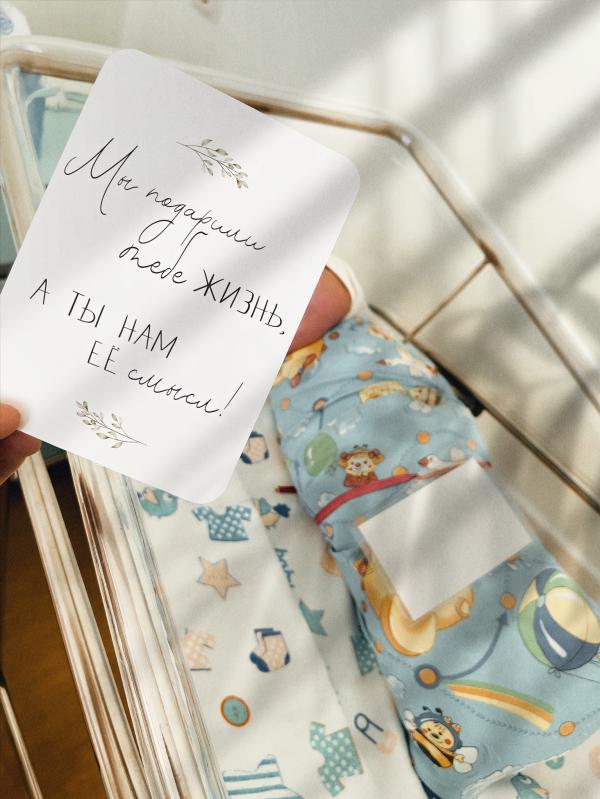 Мы подарили
тебе ЖИЗНЬ,
А ТЫ НАМ
ЕЁ смысл!